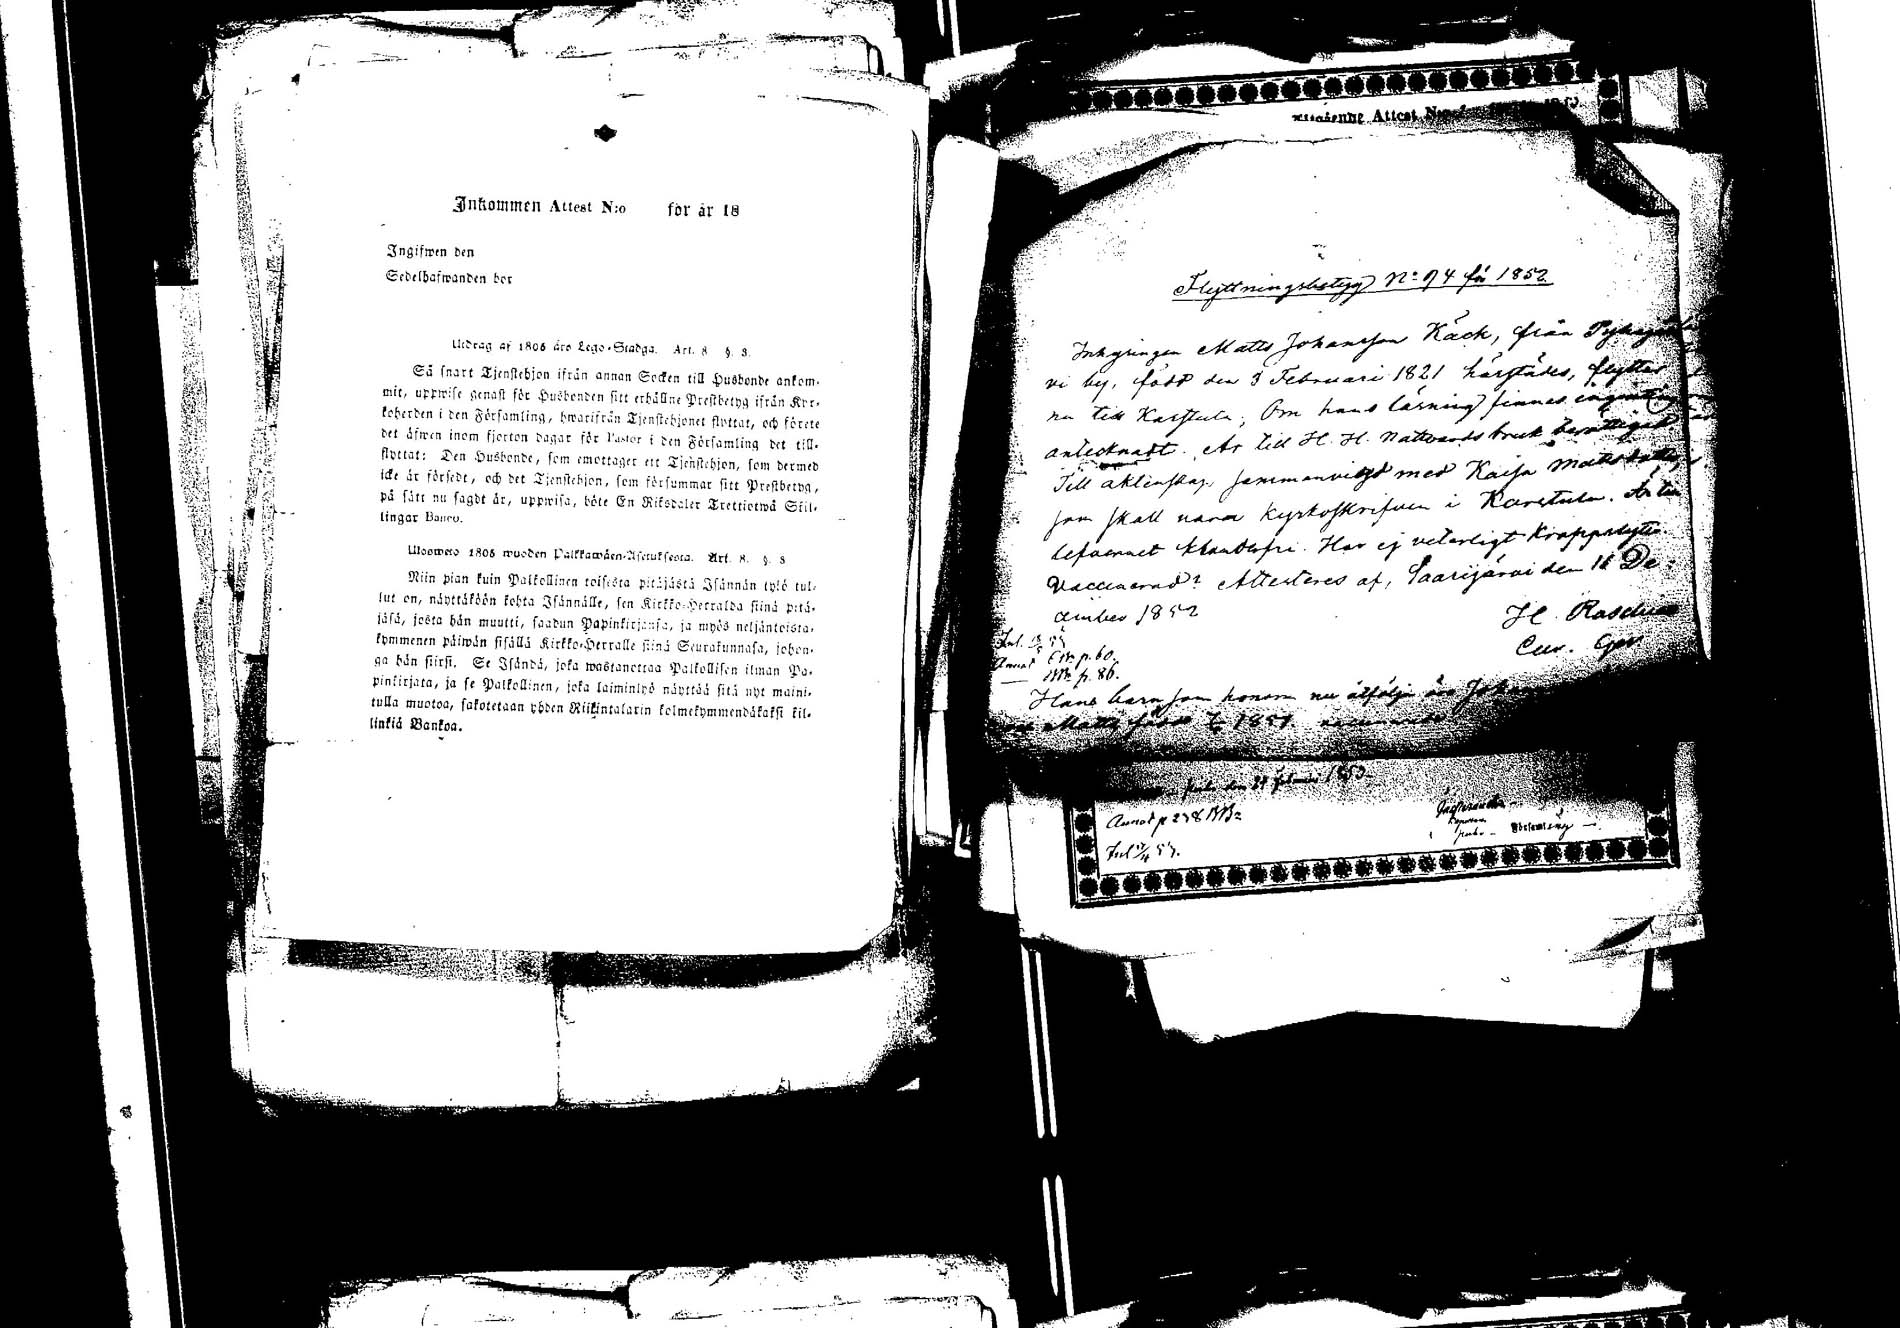 Inkommen Attest N:o för år 18
Ingifwen den
Sedelhafwanden bor
Utdrag af 1805 års Lego-Stadga. Art. 8 §. 3.
Så snart Tjenstehjon ifrån annan Socken till Husbonde ankom-
mit, uppwise genast för Husbonden sitt erhållne Prestbetyg ifrån Kyr-
koherden i den Församling, hwarifrån Tjenstehjonet flyttat, och förete
det äfwen inom fjorton dagar för Pastor i den Församling det till-
flyttat: Den Husbonde, som emottager ett Tjenstehjon, som dermed
icke är försedt, och det Tjenstehjon, som försummar sitt Prestbetyg,
på sätt nu sagdt är, uppwisa, böte En Riksdaler Trettiotwå Skil-
lingar Banco.
Uloswето 1805 wuoden Palkkawäen-Asetuksesta. Art. 8. §. 3
Niin pian kuin Palkollinen toisesta pitäjästä Isännän tykö tul-
lut on, näyttäköön kohta Isännälle, sen Kirkko-Herralda siinä pitä-
jäsä, josta hän muutti, saadun Papinkirjansa, ja myös neljäntoista-
kymmenen päiwän sisällä Kirkko-Herralle siinä Seurakunnasa, johon-
ga hän siirsi. Se Isändä, joka wastanottaa Palkollisen ilman Pa-
pinkirjata, ja se Palkollinen, joka laiminlyö näyttää sitä nyt maini-
tulla muotoa, sakotetaan yhden Riikintalarin kolmekymmendäkaksi kil-
linkiä Bankoa.
Attest N:o
Flyttningsbetyg No 74 för 1852
Inhysingen Matts Johansson Käck, från
vi by, född den 3 Februari 1821 härstädes, flyttar
nu till Karstula; Om hans läsning finnes
antecknadt. Är till H. H. Nattvards bruk berättigad
Till äktenskap sammanvigd med Kaisa
som skall vara kyrkoskrifven i Karstula. Är till
lefvernet klanderfri. Har ej veterligt kroppslyte
Vaccinerad? Attesteras af, Saarijärvi den 18 De-
cember 1852
H.
Cur. Gev.
p. 60.
p. 86.
Hans barn som honom nu åtfölja äro
Matts född 1851
den 24 Februari 1853
Annot p 238
Församling